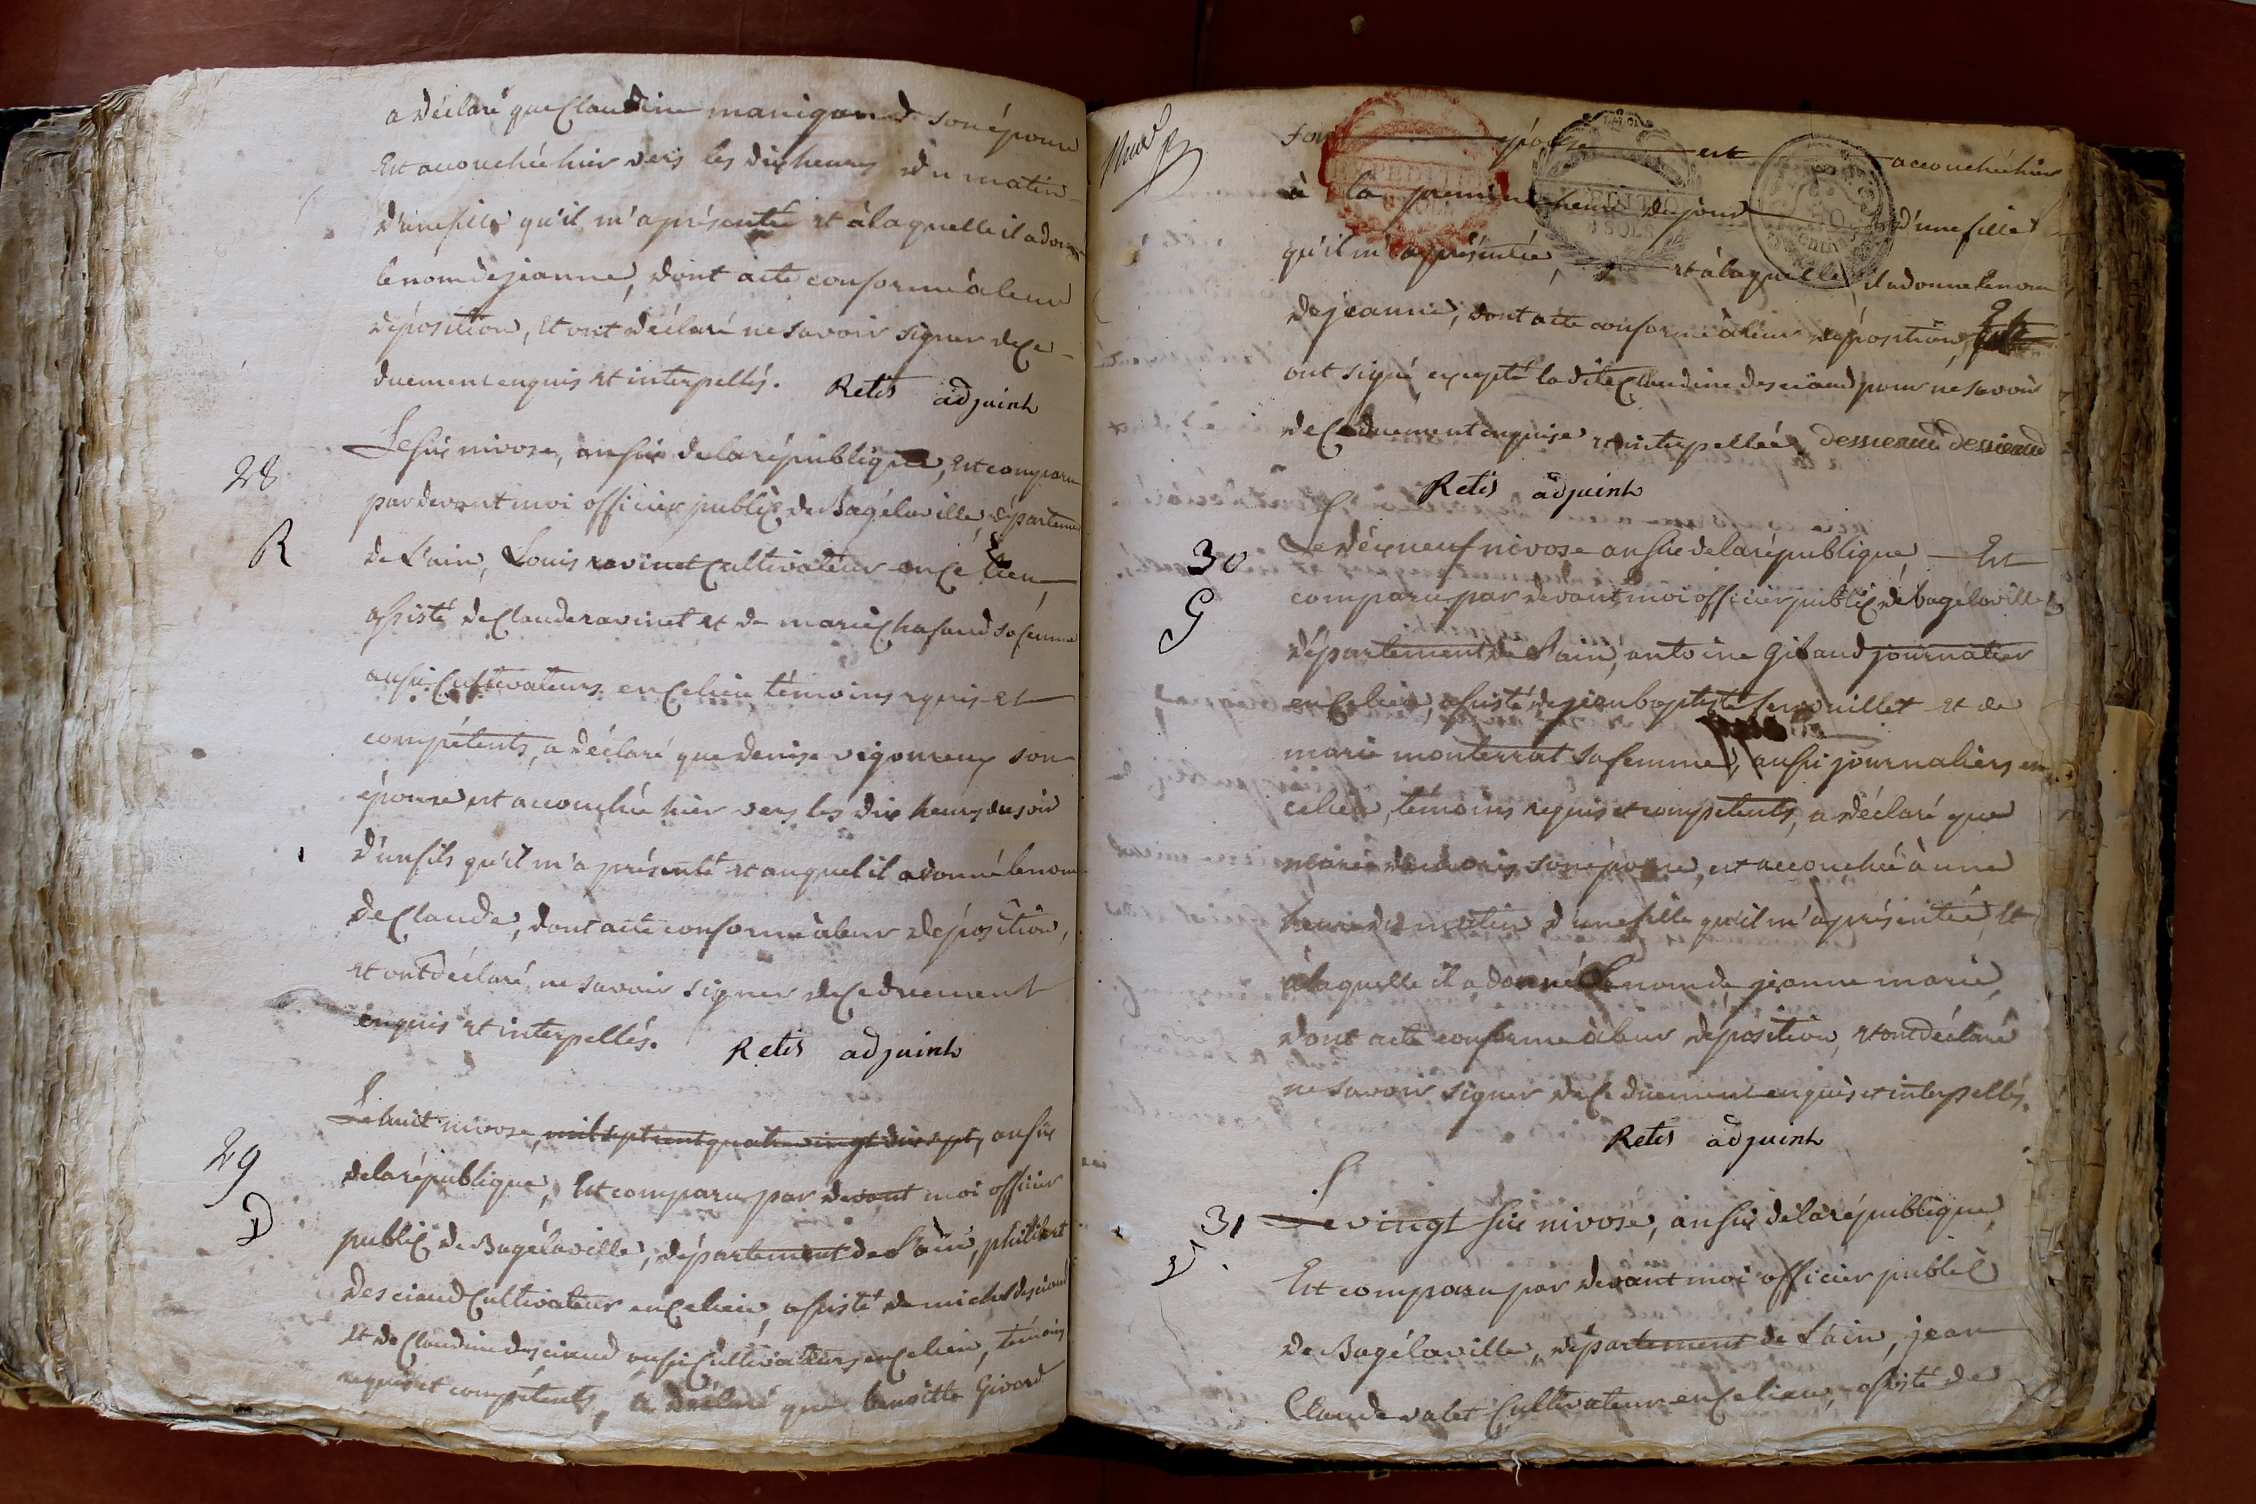 a déclaré que Claudine manigand son épouse
Est accouchée hier vers les dix heures du matin
d'une fille qu'il m'a présenté et à laquelle il a donné
le nom de jeanne, dont acte conforme à leur
déposition, Et ont déclaré ne savoir signer de ce
duement enquis et interpellés. Retis adjuint
28
R
Le six nivose, an six de la république, Est comparu
par devant moi officier public de Bagélaville département
de L'ain, Louis ravinet Cultivateur en ce lieu
assisté de Claude ravinet et de marie Chafaud sa femme
aussi Cultivateurs en ce lieu témoins requis et
compétents, a déclaré que denise vigoureux son
épouse est accouchée hier vers les dix heures du soir
d'un fils qu'il m'a présenté et auquel il a donné le nom
de Claude, dont acte conforme à leur déposition,
et ont déclaré ne savoir signer de ce duement
enquis et interpellés. Retis adjuint
29
D
Le huit nivose, mil sept cent quatre vingt dix sept, an six
de la république, Est comparu par devant moi officier
public de Bagélaville, département de L'ain, philibert
desciaud Cultivateur en ce lieu, assisté de michel desciaud
et de Claudine desciaud aussi Cultivateurs en ce lieu, témoins
requis et compétents, a déclaré que benoitte Givord
son épouse est accouchée hier
à la premiere heure du jour d'une fille
qu'il m'a présentée, et à laquelle il a donné le nom
de jeanne, dont acte conforme à leur déposition, Et
ont signé excepté ladite Claudine desciaud pour ne savoir
de ce duement enquise et interpellée. desscieaud dessieaud
Retis adjuint
30
G
Le dix neuf nivose an six de la république, Est
comparu par devant moi officier public de bagélaville
département de L'ain, antoine Gibaud journalier
en ce lieu, assisté de jean baptiste ferrouillet et de
marie monterrat sa femme, aussi journaliers en
ce lieu, témoins requis et compétents, a déclaré que
marie son épouse, est accouchée à une
heure du matin d'une fille qu'il m'a présentée, Et
à laquelle il a donné le nom de jeanne marie,
dont acte conforme à leur déposition, et ont déclaré
ne savoir signer de ce duement enquis et interpellés.
Retis adjuint
31
V
Le vingt six nivose, an six de la république,
Est comparu par devant moi officier public
de Bagélaville, département de L'ain, jean
Claude valet Cultivateur en ce lieu, assisté de